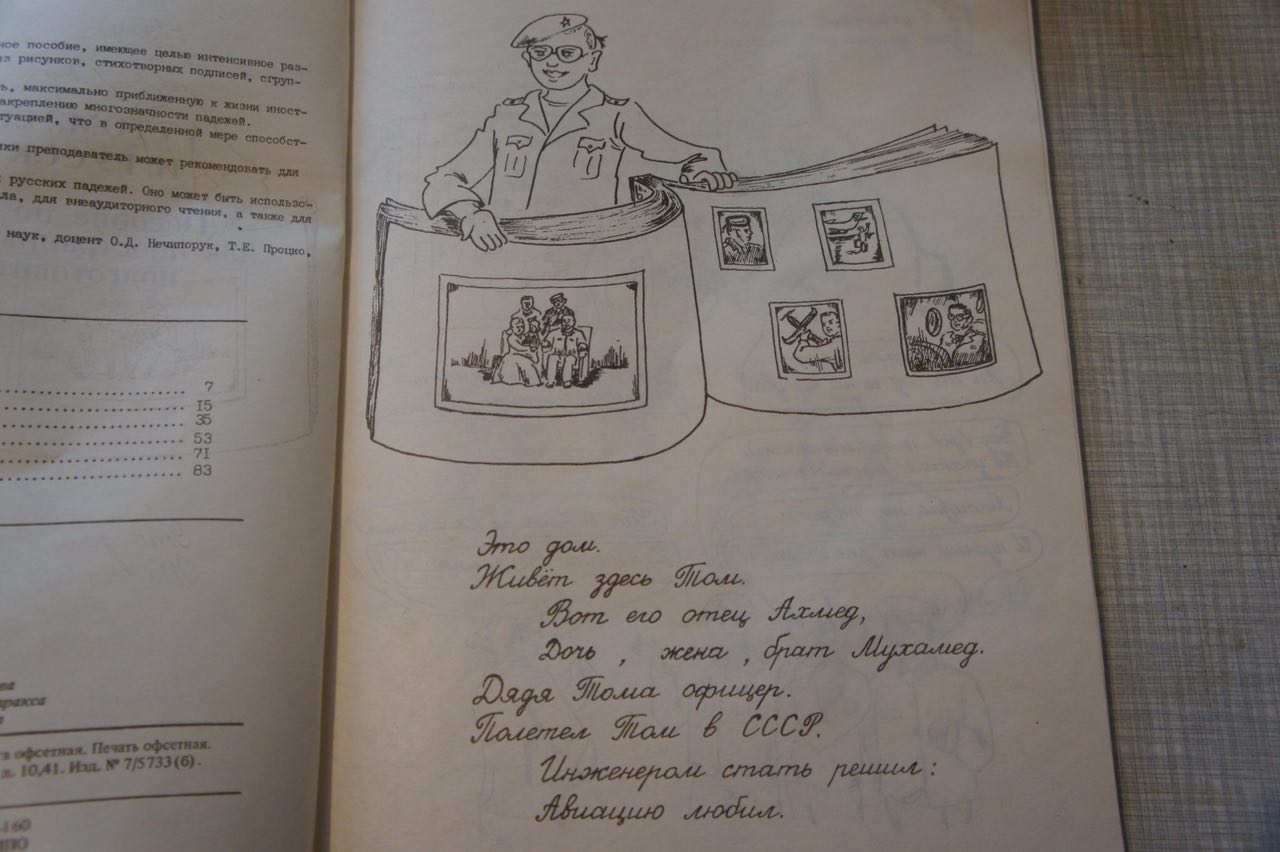 ное пособие, имеющее целью интенсивное раз-
из рисунков, стихотворных подписей, сгруп-
ь, максимально приближенную к жизни иност-
акреплению многозначности падежей.
туацией, что в определенной мере способст-
ики преподаватель может рекомендовать для
русских падежей. Оно может быть использо-
ла, для внеаудиторного чтения, а также для
наук, доцент О.Д. Нечипорук, Т.Е. Процко,
7
15
35
53
71
83
ва
аракса
в офсетная. Печать офсетная.
л. 10,41. Изд. № 7/5733(б).
-160
Это дом.
Живёт здесь Том.
Вот его отец Ахмед,
Дочь , жена , брат Мухамед.
Дядя Тома офицер.
Полетел Том в СССР.
Инженером стать решил:
Авиацию любил.